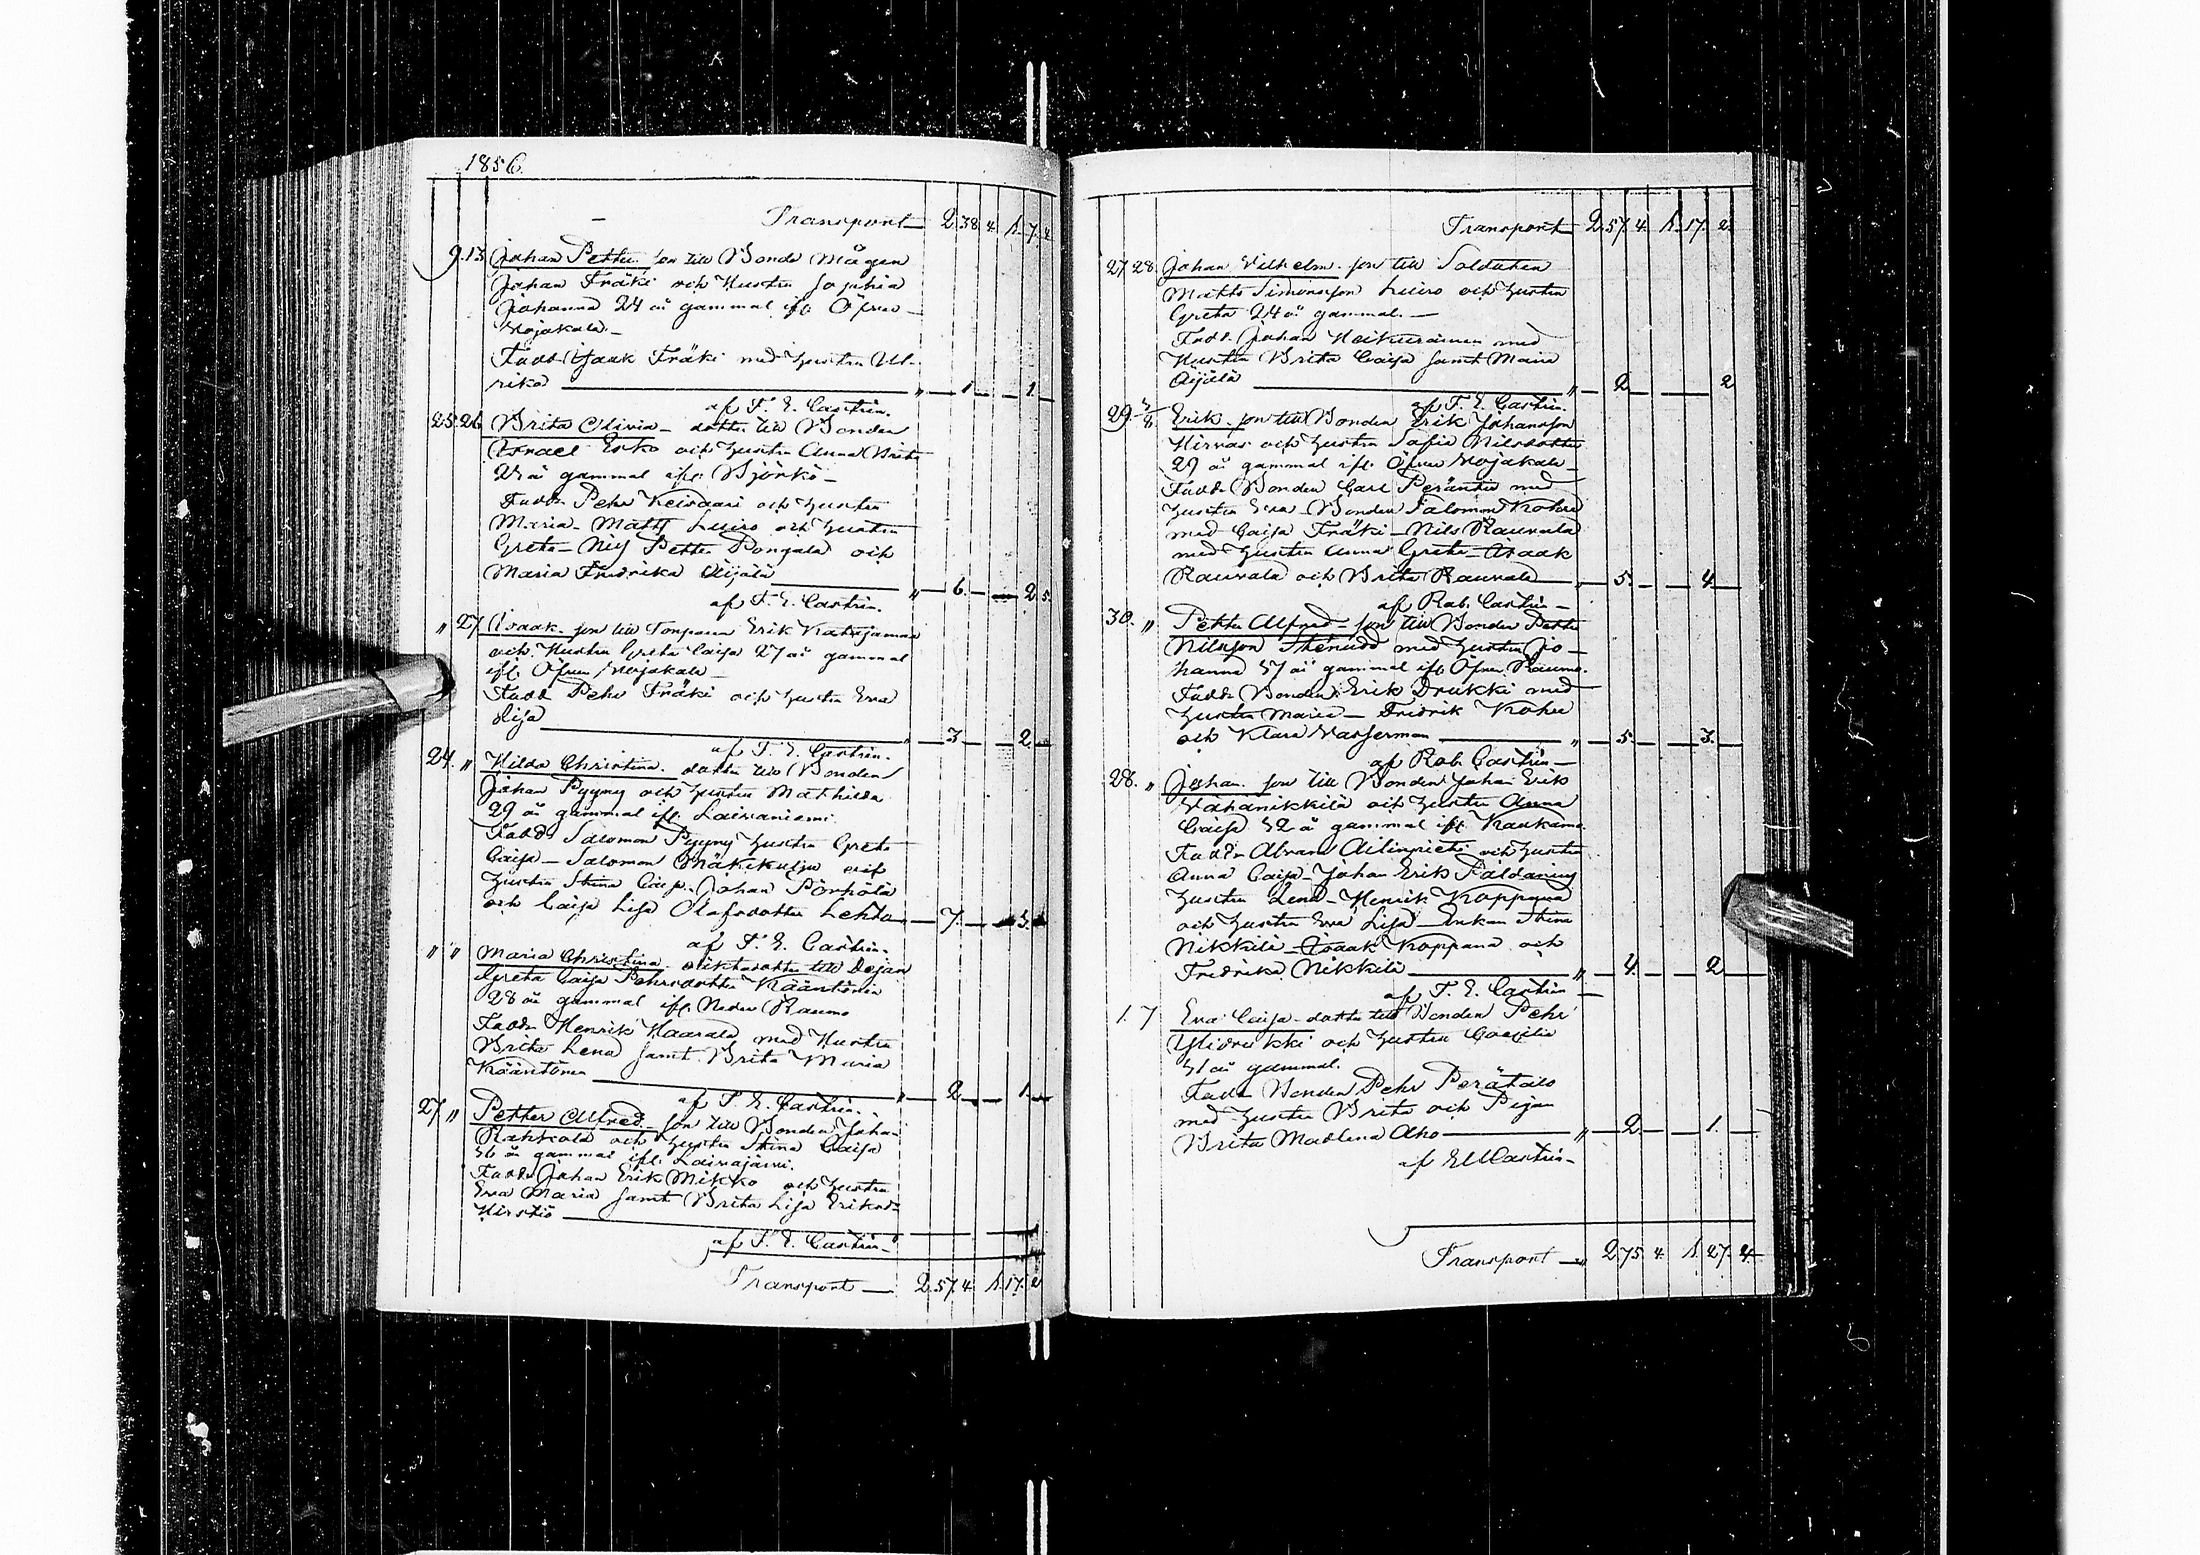 1856.
Transport 2 38 4. 1. 7. 2.
9. 13. Johan Petter. son till Bonde Mågen
Johan Fräki och Hustru Sophia
Johanna 24 år gammal ifl. Öfver
Vojakala.
Fadd. Isaak Fräki med hustru Ul-
rika " 1 1.
af F. E. Castrén.
25. 26. Brita Olivia dotter till Bonden
Israel Esko och hustru Anna Brita
år gammal ifl. Björkö
Faddr. Pehr Keisaari och hustru
Maria Matts Luiro och hustru
Greta Petter Pongala och
Maria Fredrika Äijälä " 6. 2
af F. E. Castrén.
" 27 Isaak. son till Torparen Erik
och Hustru Greta Caisa 27 år gammal
ifl. Öfver Vojakala
Fadd. Pehr Fräki och hustru Eva
Lisa " 3 2
af F. E. Castrén.
24. " Hilda Christina. dotter till Bonden
Johan Pyyny och hustru Mathilda
29 år gammal ifl. Laivaniemi.
Fadd. Salomon Pyyny hustru Greta
Caisa Salomon Mäkikulju och
hustru Stina Caisa. Johan Pörhölä
och Caisa Lisa Olofsdotter Lehto 7. 3.
af F. E. Castrén.
" " Maria Christina oäkta dotter till Pijan
Greta Caisa Pehrsdotter Kääntönen
28 år gammal ifl. Neder Raumo
Faddr. Henrik Haarala med Hustru
Brita Lena samt Brita Maria
Kääntönen " 2 1.
af F. E. Castrén.
27 " Petter Alfred son till Bonden Johan
Rahkola och hustru Stina Caisa
36 år gammal ifl. Laivajärvi.
Fadd. Johan Erik Mikko och hustru
Eva Maria samt Brita Lisa Eriksd.
Hirstiö
af F. E. Castrén
Transport 2. 57. 4. 1. 17. 2
Transport 2. 57. 4. 1. 17. 2.
27. 28. Johan Vilhelm. son till Soldaten
Matts Simonsson Luiro och hustru
Greta 24 år gammal.
Fadd. Johan Heikurainen med
Hustru Brita Caisa samt Maria
Äijälä " 2 2
af F. E. Castrén.
29. Erik son till Bonden Erik Johansson
Hirvas och hustru Sofia Nilsdotter
29 år gammal ifl. Öfver Vojakala
Fadd. Bonden Carl Peränter med
hustru Eva Bonden Salomon
med Caisa Fräki Nils Rauvala
med hustru Anna Greta Isaak
Rauvala och Brita Rauvala " 5. 4.
af Rob. Castrén
30. " Petter Alfred son till Bonden Petter
Nilsson Stenudd med hustru Jo-
hanna 37 år gammal ifl. Öfver Raumo.
Fadd. Bonden Erik Drukki med
hustru Maria Fredrik
och Klara Vasserman " 5. 3.
af Rob. Castrén
28. " Johan. son till Bonden Johan Erik
Vähänikkilä och hustru Anna
Caisa 32 år gammal ifl. Kaakamo
Faddr. Abram Ailinpieti och hustru
Anna Caisa Johan Erik Paldanius
hustru Lena Henrik Koppana
och hustru Eva Lisa Enkan Stina
Nikkilä Isaak Koppana och
Fredrika Nikkilä " 4. 2
af F. E. Castrén
1. 7 Eva Caisa dotter till Bonden Pehr
Ylidrukki och hustru Caecilia
31 år gammal.
Fadd. Bonden Pehr Perätalo
med hustru Brita och Pijan
Brita Madlena Aho " 2. 1.
af E W Castrén
Transport " 2. 75 4. 1. 27. 2